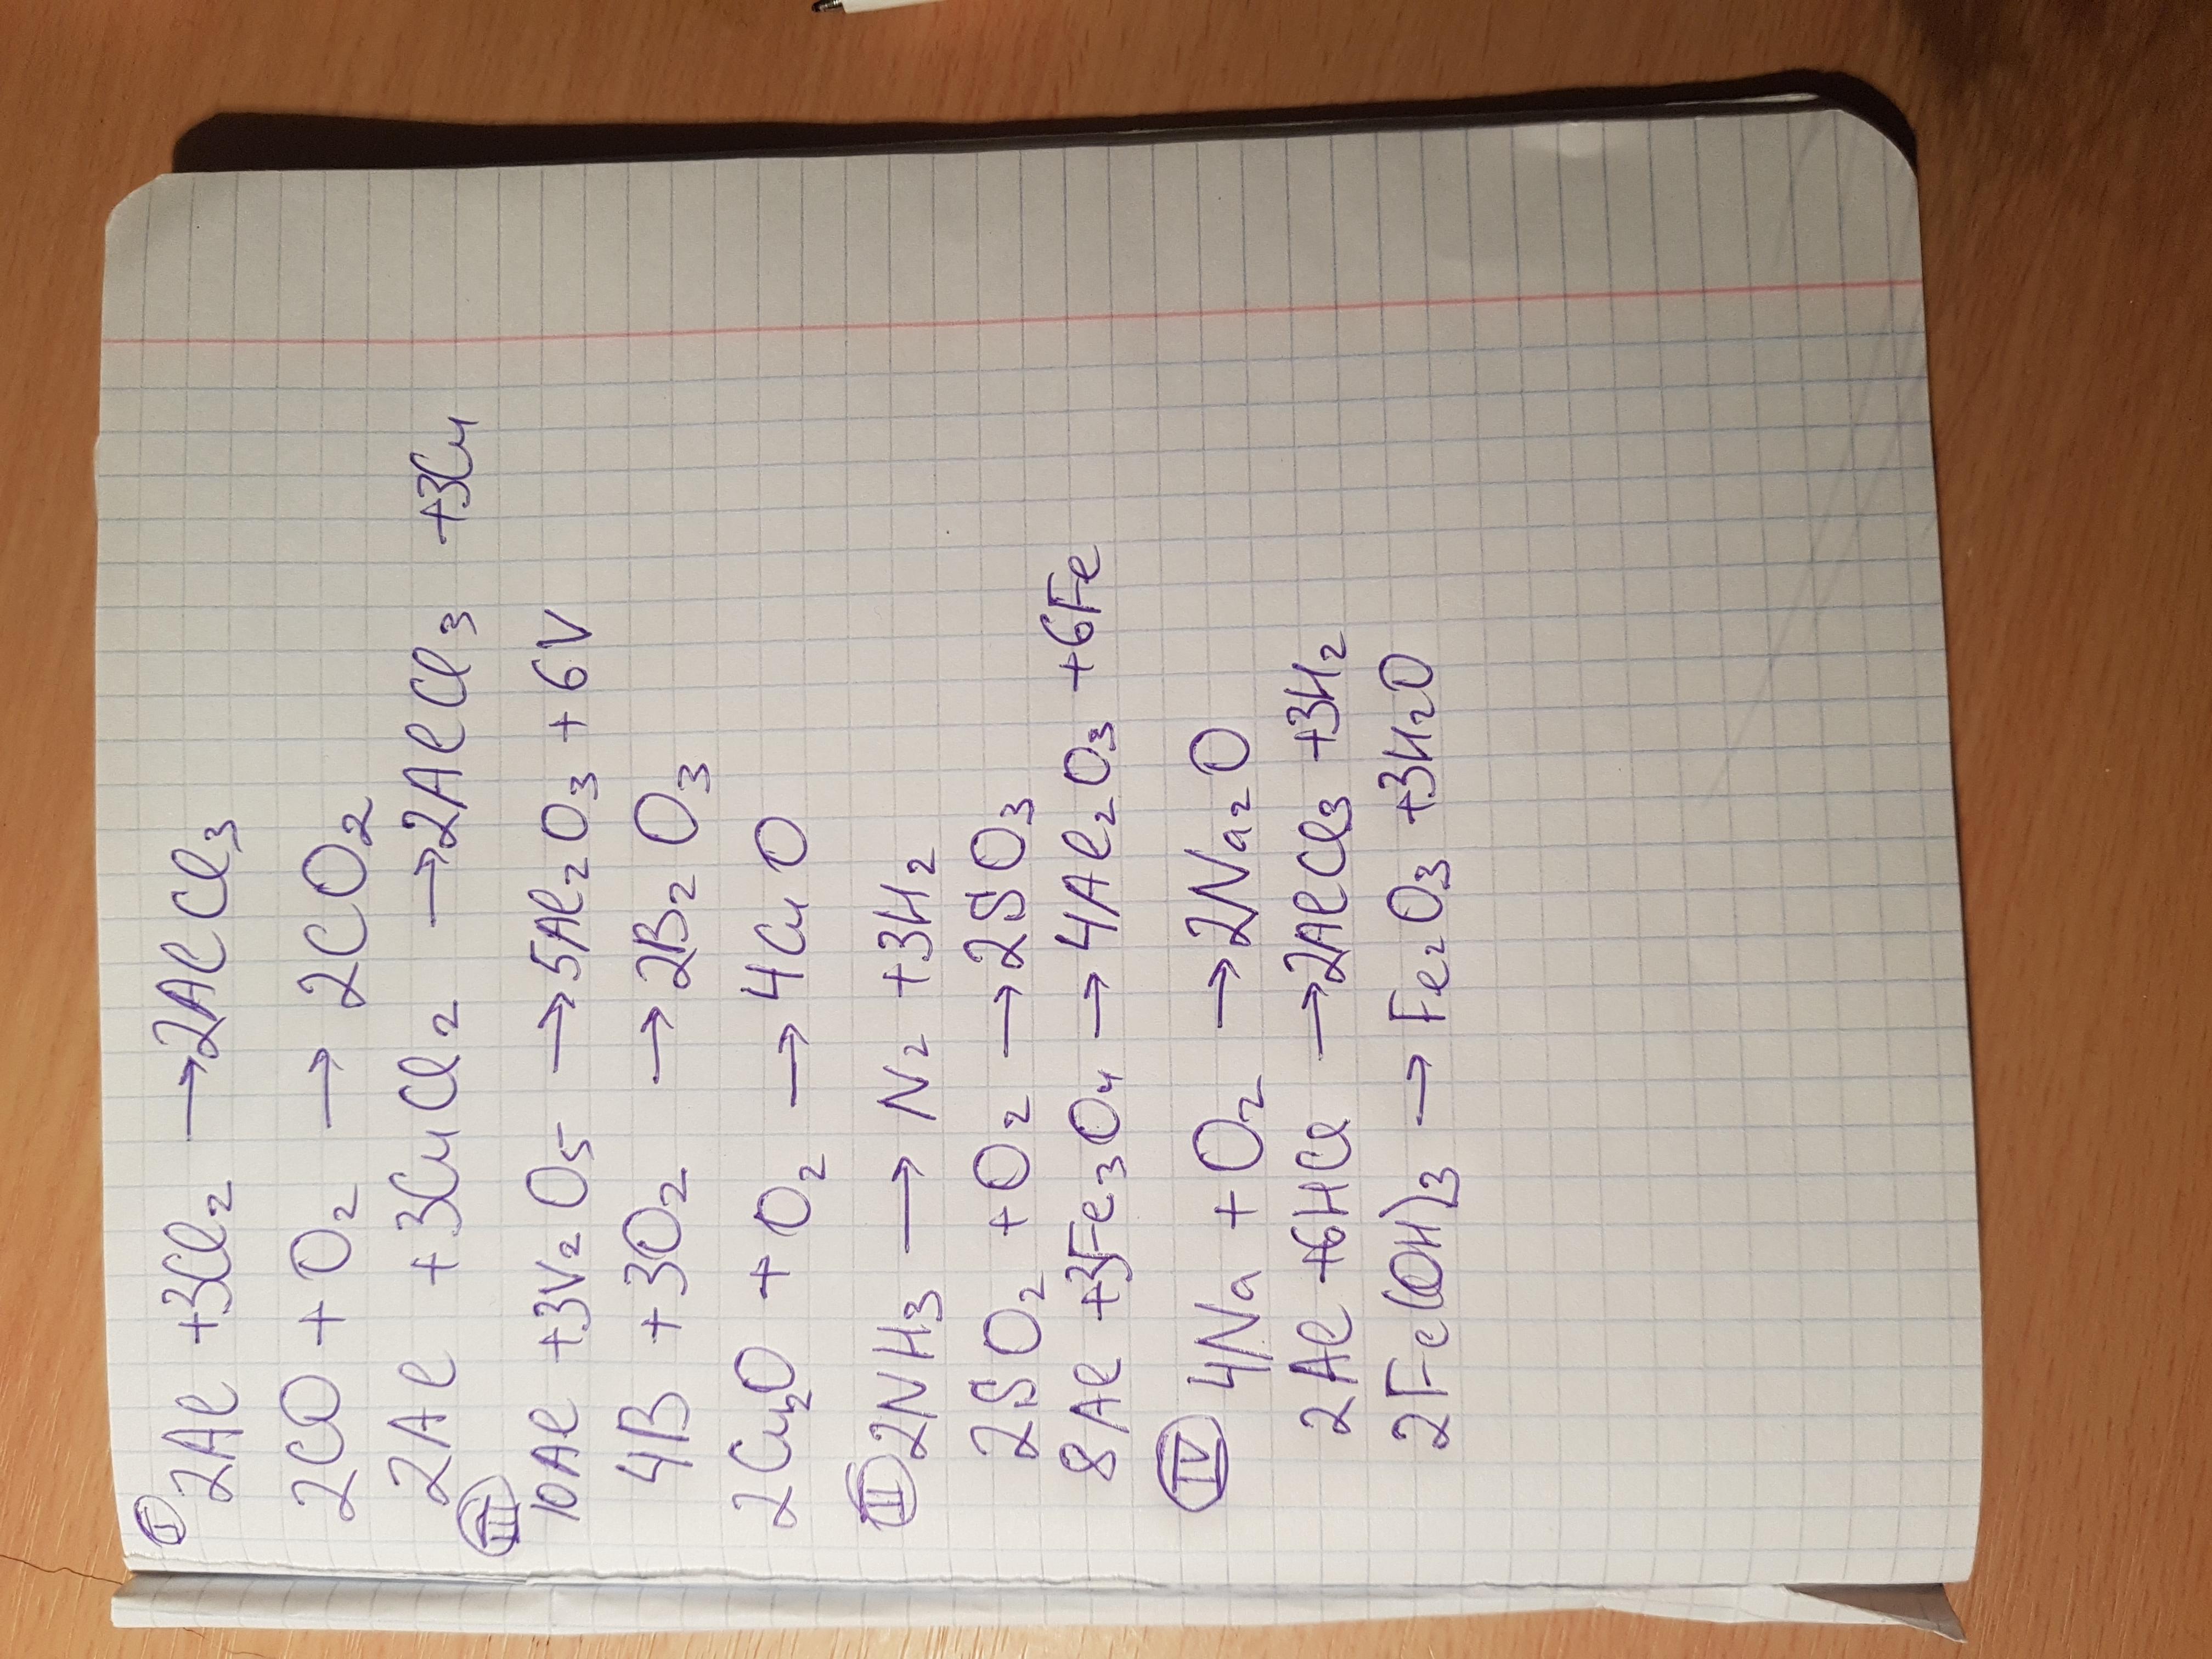 I 2Al +3Cl₂ →2AlCl₃
2CO + O₂ → 2CO₂
2Al +3CuCl₂ →2AlCl₃ +3Cu
III
10Al +3V₂O₅ →5Al₂O₃ + 6V
4B +3O₂ →2B₂O₃
2Cu₂O + O₂ → 4CuO
II 2NH₃ → N₂ +3H₂
2SO₂ +O₂ →2SO₃
8Al +3Fe₃O₄ →4Al₂O₃ +6Fe
IV 4Na +O₂ →2Na₂O
2Al +6HCl →2AlCl₃ +3H₂
2Fe(OH)₃ → Fe₂O₃ +3H₂O